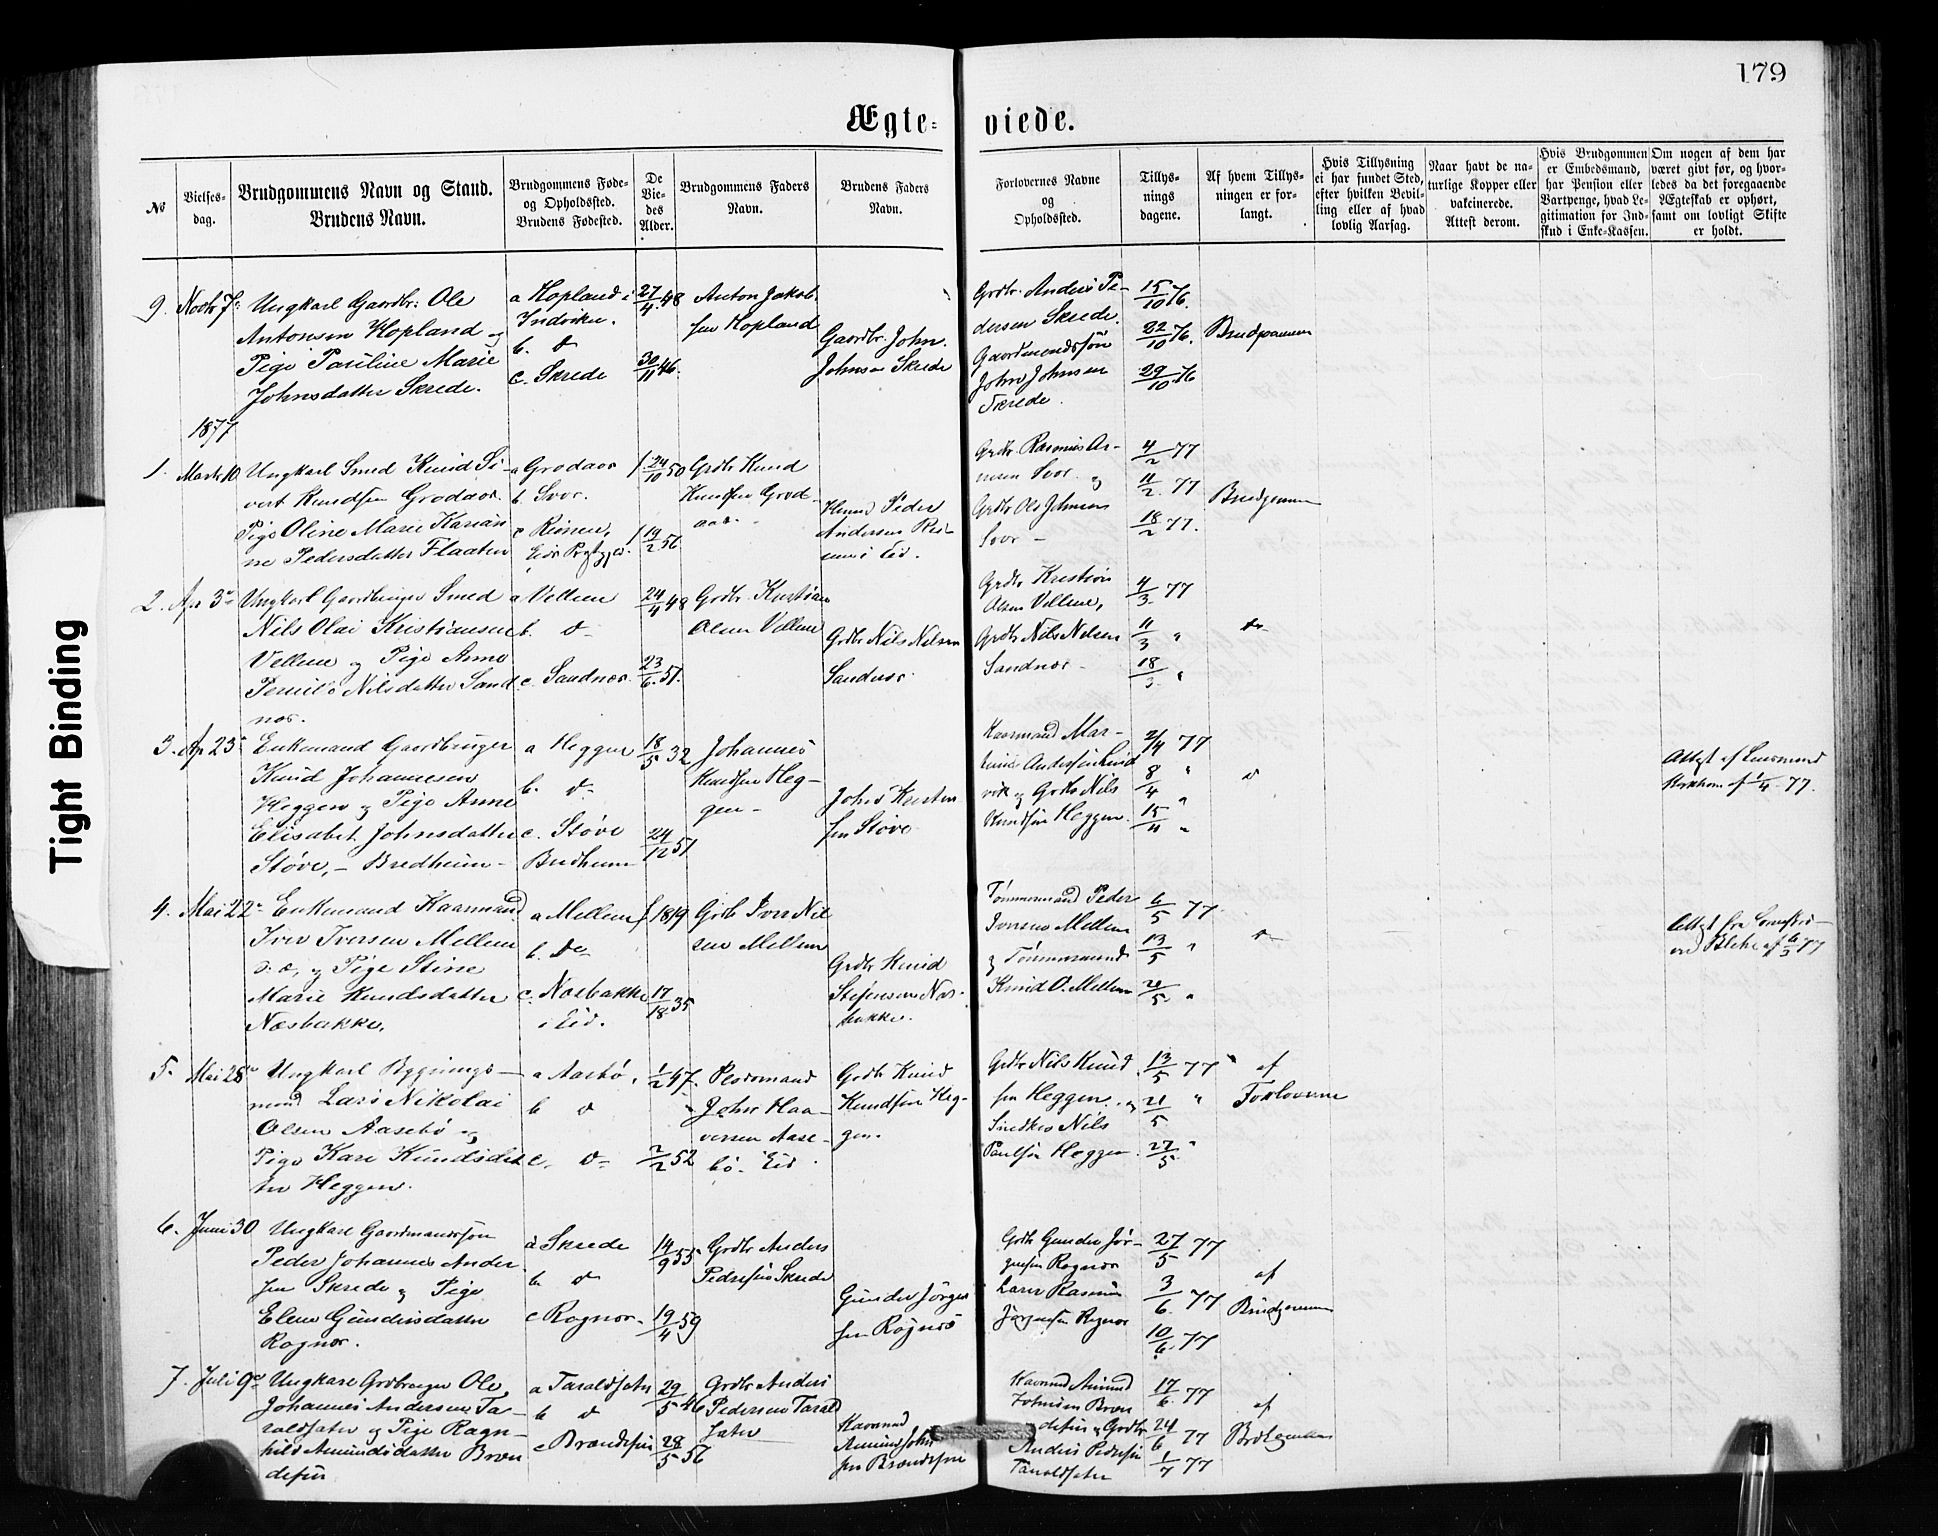 179
Ægte-
viede.
No
Vielses-
dag.
Brudgommens Navn og Stand.
Brudens Navn.
Brudgommens Føde-
og Opholdssted.
Brudens Fødested.
De
Vie-
des
Alder.
Brudgommens Faders
Navn.
Brudens Faders
Navn.
Forlovernes Navne
og
Opholdssted.
Tillys-
nings
dagene.
Af hvem Tillys-
ningen er for-
langt.
Hvis Tillysning
ei har fundet Sted,
efter hvilken Bevil-
ling eller af hvad
lovlig Aarsag.
Naar havt de na-
turlige Kopper eller
vakcinerede.
Attest derom.
Hvis Brudgommen
er Embedsmand,
har Pension eller
Vartpenge, hvad Le-
gitimation for Ind-
skud i Enke-Kassen.
Om nogen af dem har
været givt før, og hvor-
ledes da det foregaaende
Ægteskab er ophørt,
samt om lovligt Skifte
er holdt.
9. Novbr 7de
Ungkarl Gaardbr. Ole
Antonsen Hopland og
Pige Pauline Marie
Johnsdatter Skrede.
a Hopland i
Indviken.
b. do
c. Skrede
27/4 48
30/11 46.
Anton Jakob-
sen Hopland
Gaardbr. John
Johnsen Skrede
Grdbr. Anders Pe-
dersen Skrede.
Gaardmandssøn
John Johnsen
Skrede.
15/10 76.
22/10 76.
29/10 76
Brudgommen
1877
1. Marts 10
Ungkarl Smed Knud Si-
vert Knudsen Grodaas.
Pige Oline Marie Karian-
ne Pedersdatter Flaaten
a Grodaas
b. Svor.
c Reisner,
Eids Prgtgjd.
24/10 50
19/2 56
Grdbr Knud
Knudsen Grod-
aas.
Peder
Andersen
i Eid.
Grdbr. Rasmus As-
Svor og
Grdbr Ole Johnsen
Svor
4/2 77
11/2 77
18/2 77.
Brudgommen
2. Apr 3die
Ungkarl Gaardbruger Smed
Nils Olai Kristiansen
Vellene og Pige Anne
Pernile Nilsdatter Sand-
nes.
a Vellene
b. do
c. Sandnes.
24/4 48
23/6 51.
Grdbr. Kristian
Olsen Vellene
Grdbr Nils Nilsen
Sandnes.
Grdbr Kristian
Olsen Vellene,
Grdbr Nils Nilsen
Sandnes
4/3 77
11/3 "
18/3 "
do
3. Ap 23de
Enkemand Gaardbruger
Knud Johannesen
Heggen og Pige Anne
Elisabet Johnsdatter
Støve, - Bredheim -
a Heggen
b. do
c. Støve
Bredheim
18/5 32
24/12 51
Johannes
Knudsen Heg-
gen -
John Kristen-
sen Støve
Kaarmand Mar-
tinus Andersen Lind-
vik og Grdbr Nils
Knudsen Heggen.
2/4 77
8/4 "
15/4 "
do
Attest af Lensmand
af 1/4 77.
4. Mai 22de
Enkemand Kaarmand
Iver Iversen Mellem
og Pige Stine
Marie Knudsdatter
Næsbakke.
a Mellem
b. do
c. Næsbakke
i Eid.
1819
17/18 35
Grdbr Iver Nil-
sen Mellem
Grdbr Knud
Stefensen Næs-
bakke.
Tømmermand Peder
Iversen Mellem
og Tømmermand
Knud O. Mellem
6/5 77
13/5 "
21/5 "
do
Attest fra
af 6/5 77
5. Mai 28de
Ungkarl Bygnings-
mand Lars Nikolai
Olsen Aasebø og
Pige Kari Knudsdat-
ter Heggen.
a Aasebø,
b do
c. do
1/2 47.
2/2 52
John Haa-
versen Aase-
bø. Eid.
Grdbr Knud
Knudsen Heg-
gen.
Grdbr Nils Knud-
sen Heggen. og
Snedker Nils
Paulsen Heggen.
13/5 77
21/5 "
27/5 "
af
Forloverne
6. Juni 30
Ungkarl Gaardmandssøn
Peder Johannes Ander-
sen Skrede og Pige
Elene Gundersdatter
Rognes.
a Skrede
b. do
c Rognes.
14/9 55
19/4 59
Grdbr Anders
Pedersen Skrede
Gunder Jørgen-
sen Rognes
Grdbr Gunder Jør-
gensen Rognes
Lars Rasmus
Jørgensen Rognes
27/5 77
3/6 77
10/6 77
af
Brudgommen
7. Juli 9de
Ungkarl Grdbruger Ole
Johannes Andersen Ta-
raldsæter og Pige Ragn-
hild Amundsdatter Bræn-
desen
a Taraldsæter
b do
c Brændesen
29/5 46
29/5 56
Grdbr Anders
Pedersen Tarald-
sæter
Kaarmd
Amund John-
sen Brændesen
Kaarmd Amund
Johnsen Bræn-
desen og Grdbr
Anders Pedersen
Taraldsæter
17/6 77
24/6 77
1/7 77
af
Brdgommen
Tight Binding